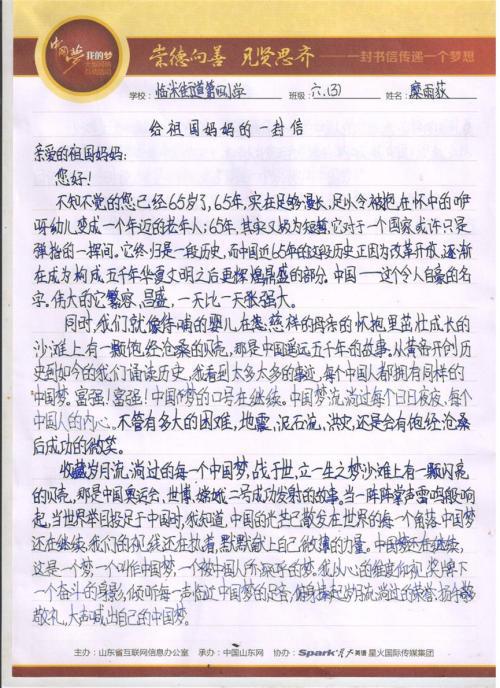 中国梦 我的梦
大型网络
互动活动
崇德向善 见贤思齐 ——一封书信传递一个梦想
学校：临米街道第四小学 班级：六.(3) 姓名：糜雨荻
给祖国妈妈的一封信
亲爱的祖国妈妈：
您好！
不知不觉的您已经65岁了，65年，实在足够漫长，足以令被抱在怀中的咿
呀幼儿变成一个年迈的老年人；65年，其实又颇为短暂，它对于一个国家或许只是
弹指的一挥间。它终归是一段历史，而中国近65年的这段历史正因为改革开放，逐渐
在成为构成五千年华夏文明之后更辉煌鼎盛的部分。中国——这个令人自豪的名
字。伟大的它繁容、昌盛，一天比一天张强大。
同时，我们就像待哺的婴儿在您慈祥的母亲的怀抱里茁壮成长的
沙滩上有一颗饱经沧桑的贝壳，那是中国遥远五千年的故事。从黄帝开创历
史到如今的我们诵读历史，我看到太多太多的事迹，每个中国人都拥有同样的
中国梦。富强！富强！中国梦的口号在继续。中国梦流淌过每个日日夜夜、每个
中国人的内心，不管有多大的困难，地震，泥石流、洪灾，还是会有饱经沧桑
后成功的微笑。
收藏岁月流淌过的每一个中国梦，成于世，立一生之梦沙滩上有一颗闪亮
的贝壳，那是中国奥运会、世博、嫦娥二号成功发射的故事。当一阵阵掌声雷鸣般响
起，当世界举目投足于中国时，我知道，中国的光芒已散发在世界的每一个角落。中国梦
还在继续，我们的视线还在执着，默默献上自己微薄的力量。中国梦还在继续，
这是一个梦，一个叫作中国梦，一个被中国人所深呼的梦。我从心的维度仰视，奖牌下
一个奋斗的身影，倾听每一声临近中国梦的足音，俯身捧起岁月流淌过的荣誉，抬手敬
敬礼，大声喊出自己的中国梦。
主办：山东省互联网信息办公室 承办：中国山东网 协办：Spark 星火英语 星火国际传媒集团